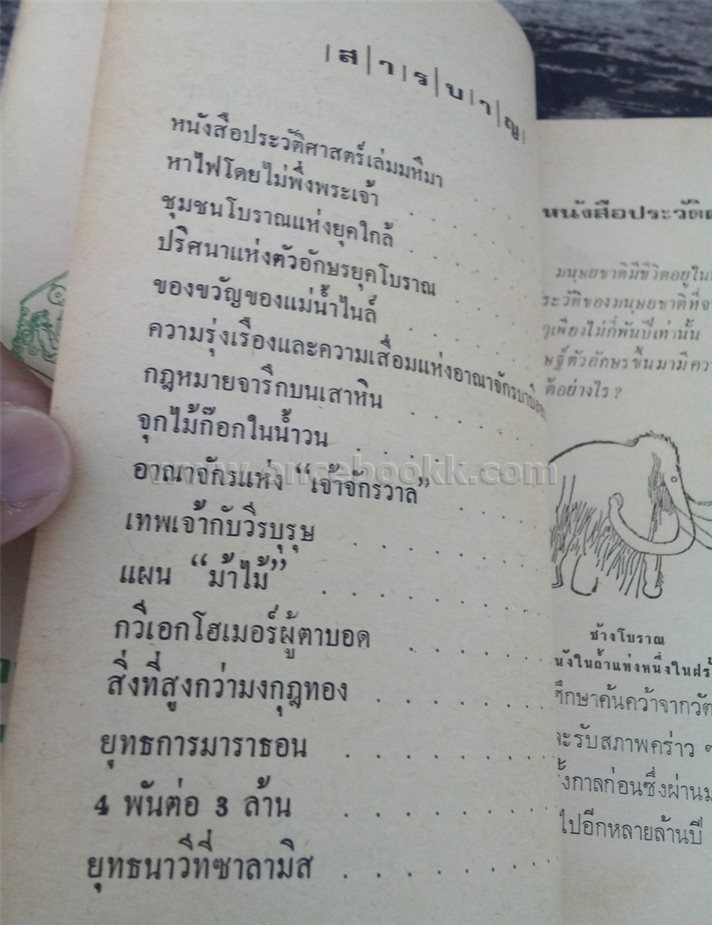 สารบาญ
หนังสือประวัติศาสตร์เล่มมหึมา
หาไฟโดยไม่พึ่งพระเจ้า
ชุมชนโบราณแห่งยุคใกล้
ปริศนาแห่งตัวอักษรยุคโบราณ
ของขวัญของแม่น้ำไนล์
ความรุ่งเรืองและความเสื่อมแห่งอาณาจักรบาบิลอน
กฎหมายจารึกบนเสาหิน
จุกไม้ก๊อกในน้ำวน
อาณาจักรแห่ง “เจ้าจักรวาล”
เทพเจ้ากับวีรบุรุษ
แผน “ม้าไม้”
กวีเอกโฮเมอร์ผู้ตาบอด
สิ่งที่สูงกว่ามงกุฎทอง
ยุทธการมาราธอน
4 พันต่อ 3 ล้าน
ยุทธนาวีที่ซาลามิส
หนังสือประวัติ
มนุษยชาติมีชีวิตอยู่ใน
ประวัติของมนุษยชาติที่
เพียงไม่กี่พันปีเท่านั้น
ตัวอักษรขึ้นมามี
ได้อย่างไร ?
ช้างโบราณ
ผนังในถ้ำแห่งหนึ่งใน
ศึกษาค้นคว้าจาก
จะรับสภาพคร่าว ๆ
ครั้งกาลก่อนซึ่งผ่าน
ไปอีกหลายล้านปี
www.oncebookk.com